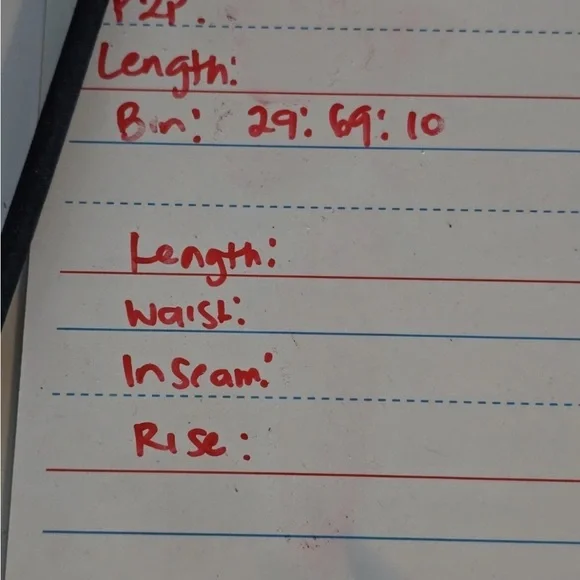 P2P.
Length:
Bin: 29: 69: 10
Length:
Waist:
Inseam:
Rise: